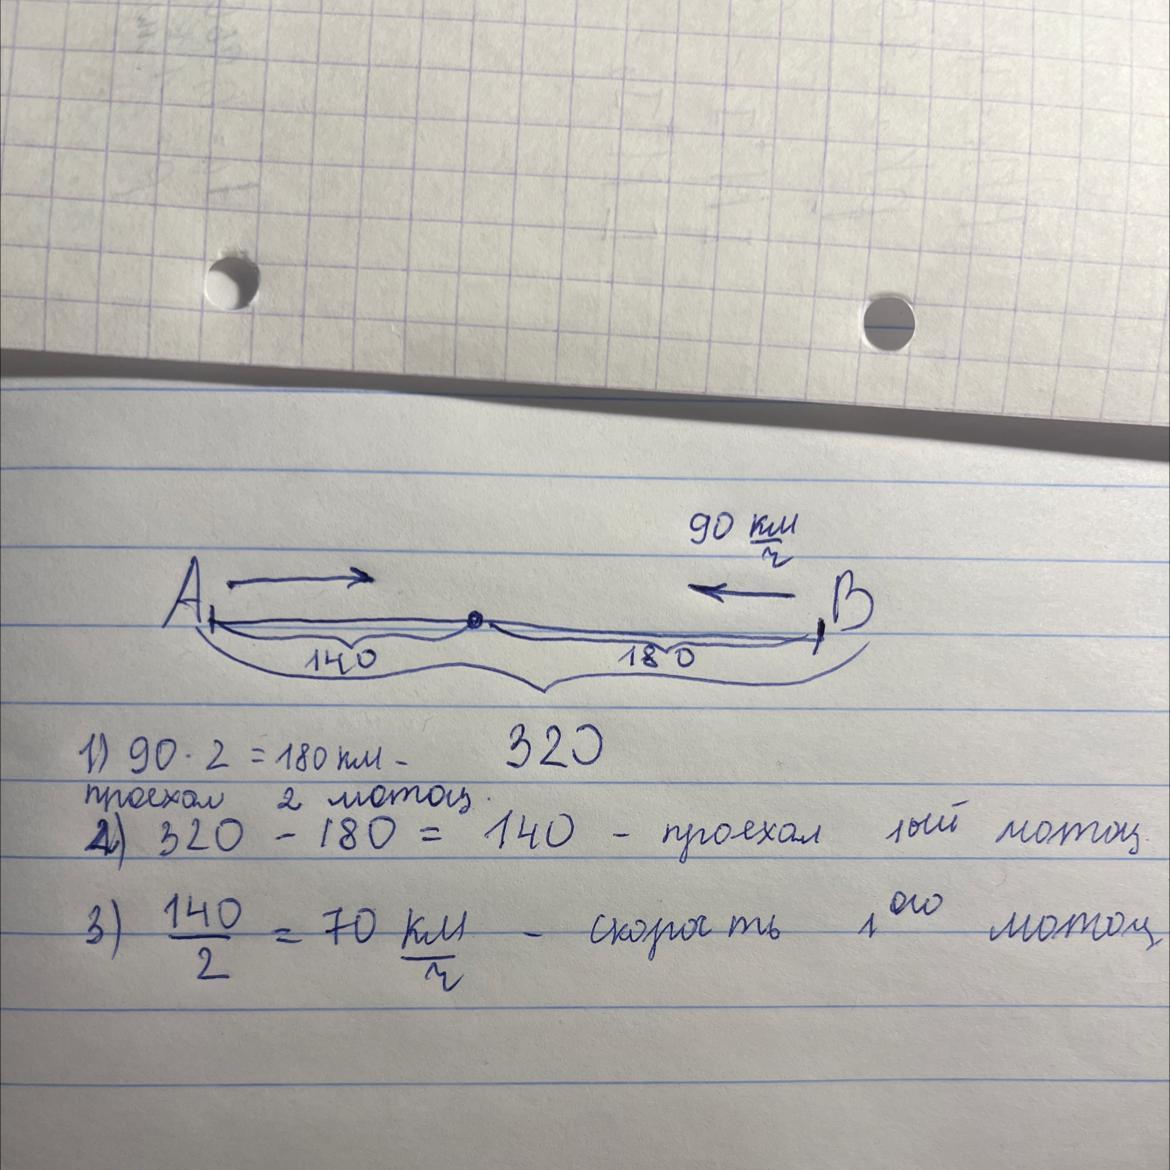 90 км/ч
A B
140 180
320
1) 90 · 2 = 180 км -
проехал 2 мотоц.
2) 320 - 180 = 140 - проехал 1ый мотоц.
3) 140/2 = 70 км/ч - скорость 1ого мотоц